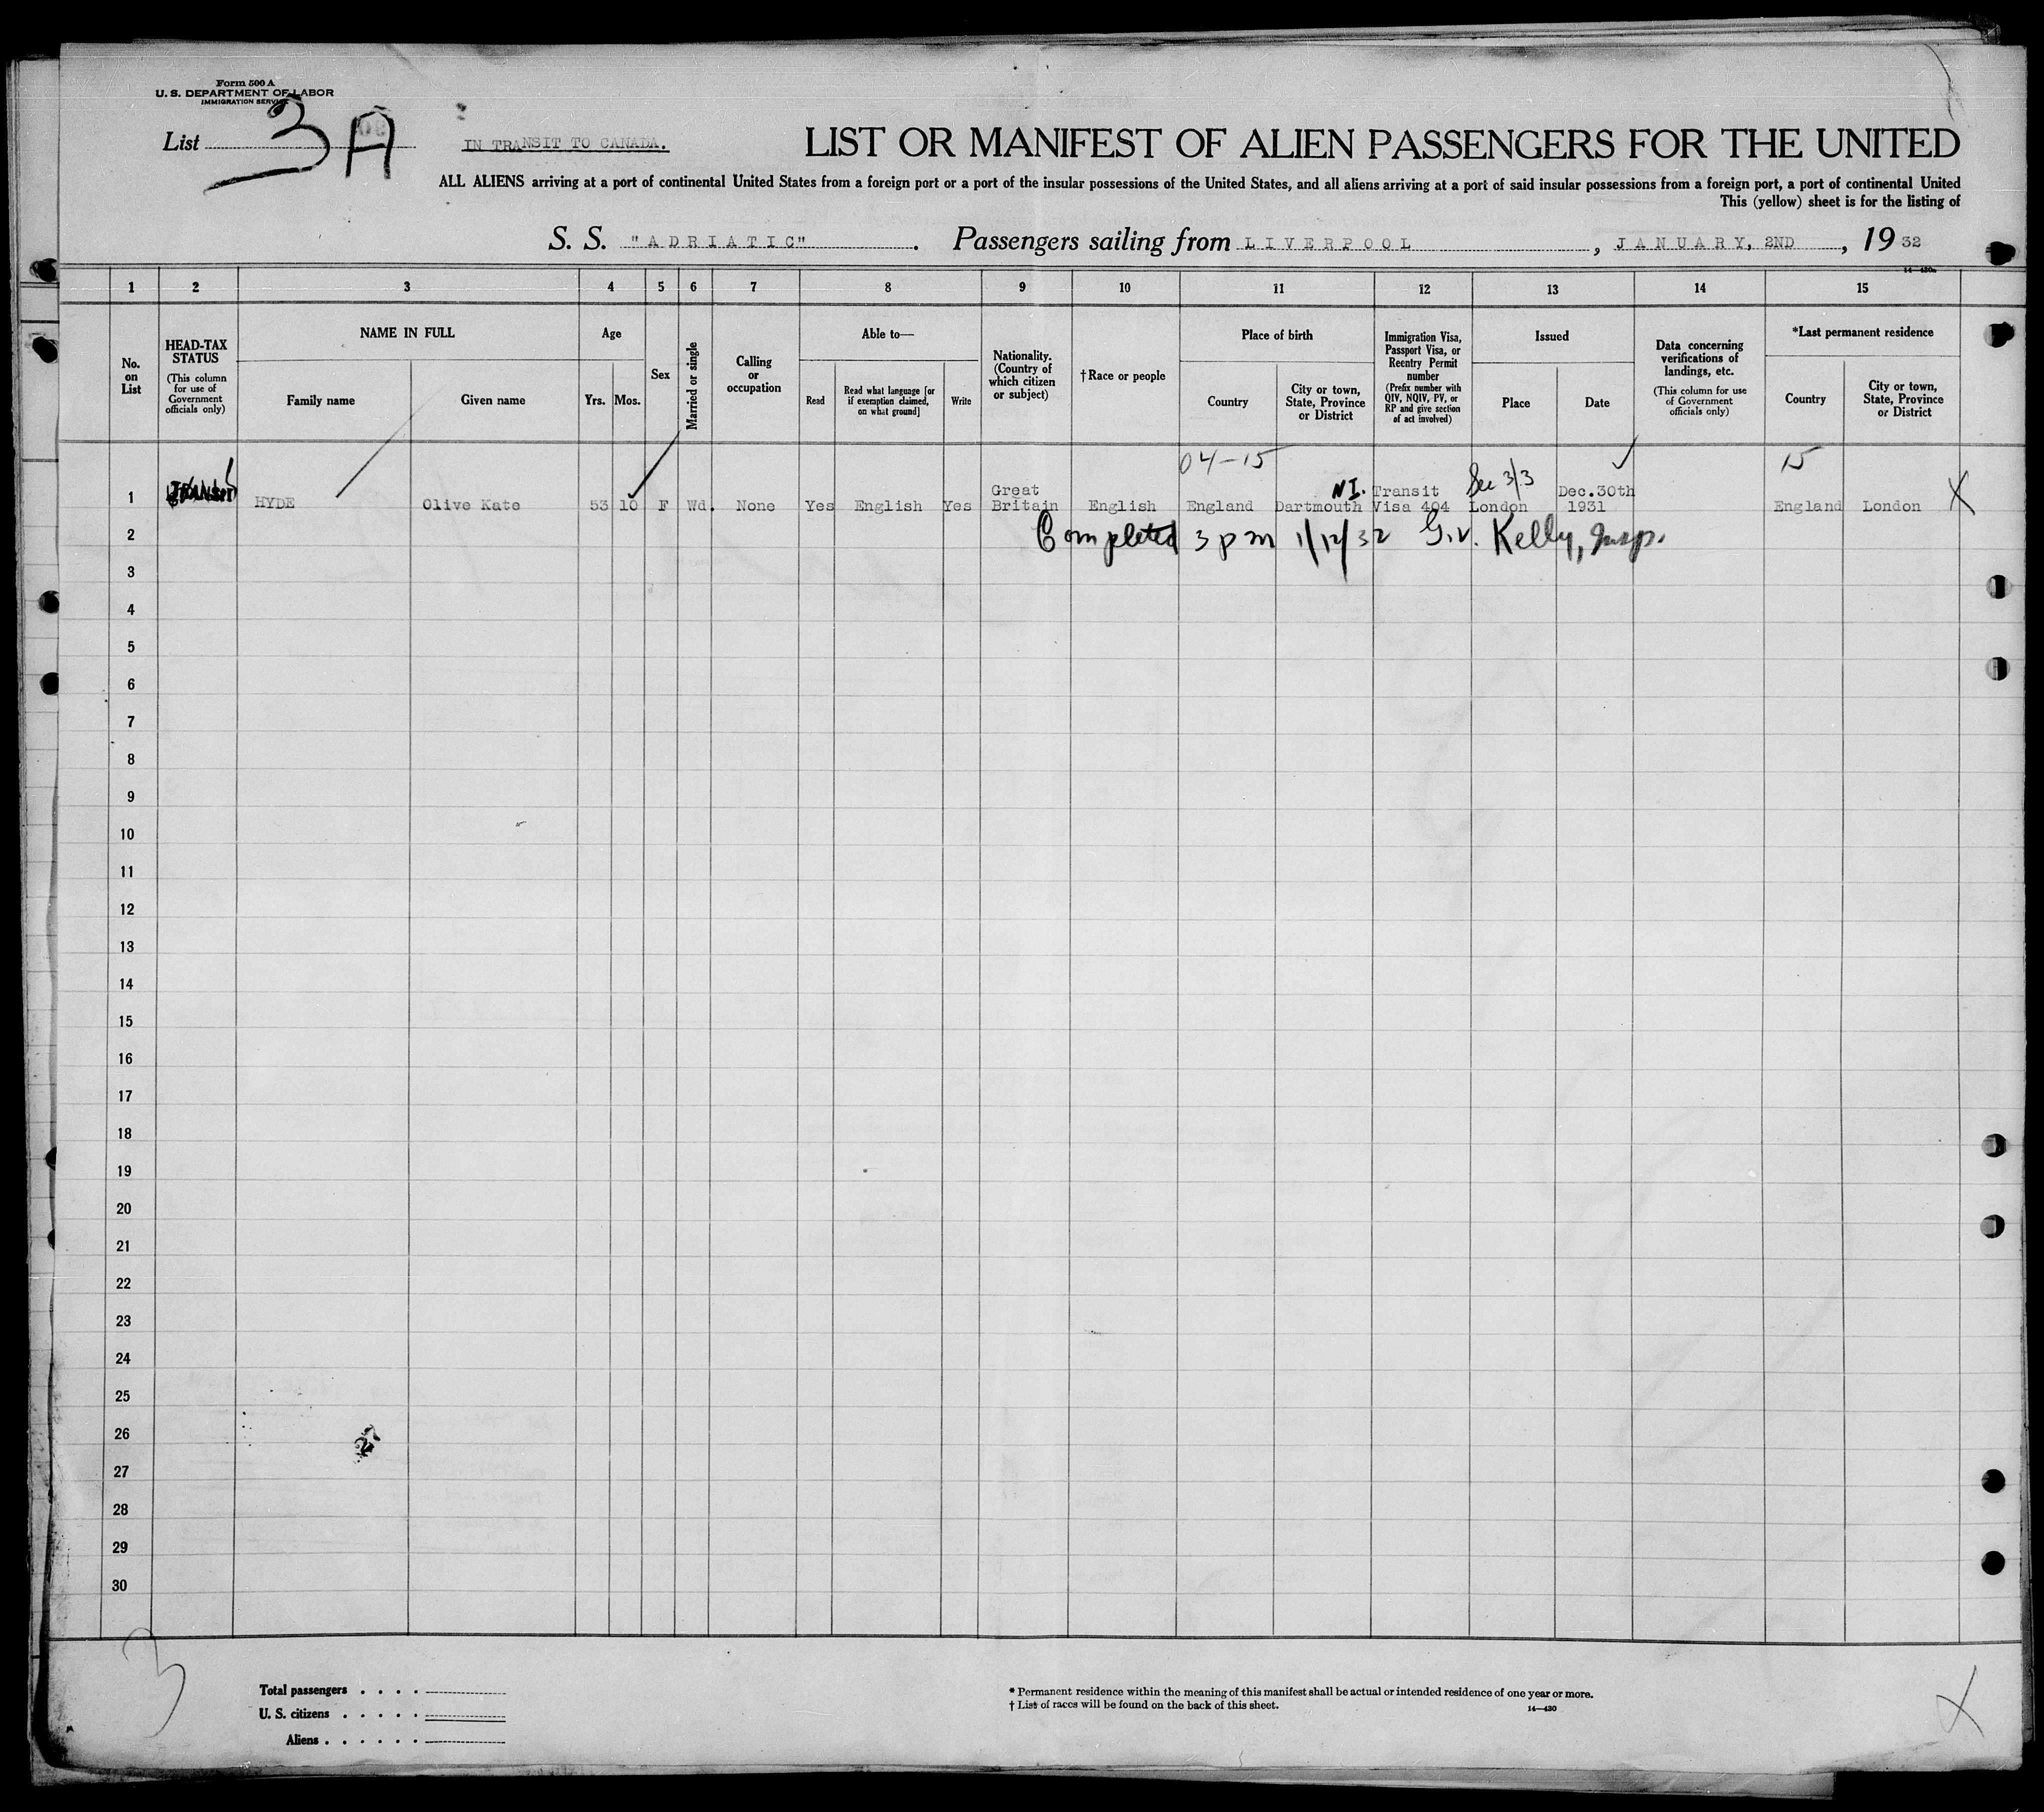 Form 500 A
U. S. DEPARTMENT OF LABOR
IMMIGRATION SERVICE
List 3 A
IN TRANSIT TO CANADA.
LIST OR MANIFEST OF ALIEN PASSENGERS FOR THE UNITED
ALL ALIENS arriving at a port of continental United States from a foreign port or a port of the insular possessions of the United States, and all aliens arriving at a port of said insular possessions from a foreign port, a port of continental United
This (yellow) sheet is for the listing of
S. S. "ADRIATIC". Passengers sailing from LIVERPOOL, JANUARY, 2ND, 19 32
14—430a
1 2 3 4 5 6 7 8 9 10 11 12 13 14 15
No. on List
HEAD-TAX STATUS
(This column for use of Government officials only)
NAME IN FULL
Family name Given name
Age
Yrs. Mos.
Sex
Married or single
Calling or occupation
Able to—
Read
Read what language [or if exemption claimed, on what ground]
Write
Nationality. (Country of which citizen or subject)
†Race or people
Place of birth
Country
City or town, State, Province or District
Immigration Visa, Passport Visa, or Reentry Permit number
(Prefix number with QIV, NQIV, PV, or RP and give section of act involved)
Issued
Place Date
Data concerning verifications of landings, etc.
(This column for use of Government officials only)
*Last permanent residence
Country
City or town, State, Province or District
04-15 15
1 HYDE Olive Kate 53 10 F Wd. None Yes English Yes Great Britain English England Dartmouth N.I. Transit Visa 404 Sec 3/3 London Dec.30th 1931 England London X
2 Completed 3 pm 1/12/32 G.V. Kelly, Insp.
3
4
5
6
7
8
9
10
11
12
13
14
15
16
17
18
19
20
21
22
23
24
25
26
27
28
29
30
27
3
Total passengers . . . .
U. S. citizens . . . . .
Aliens . . . . . .
* Permanent residence within the meaning of this manifest shall be actual or intended residence of one year or more.
† List of races will be found on the back of this sheet.
14—430
X